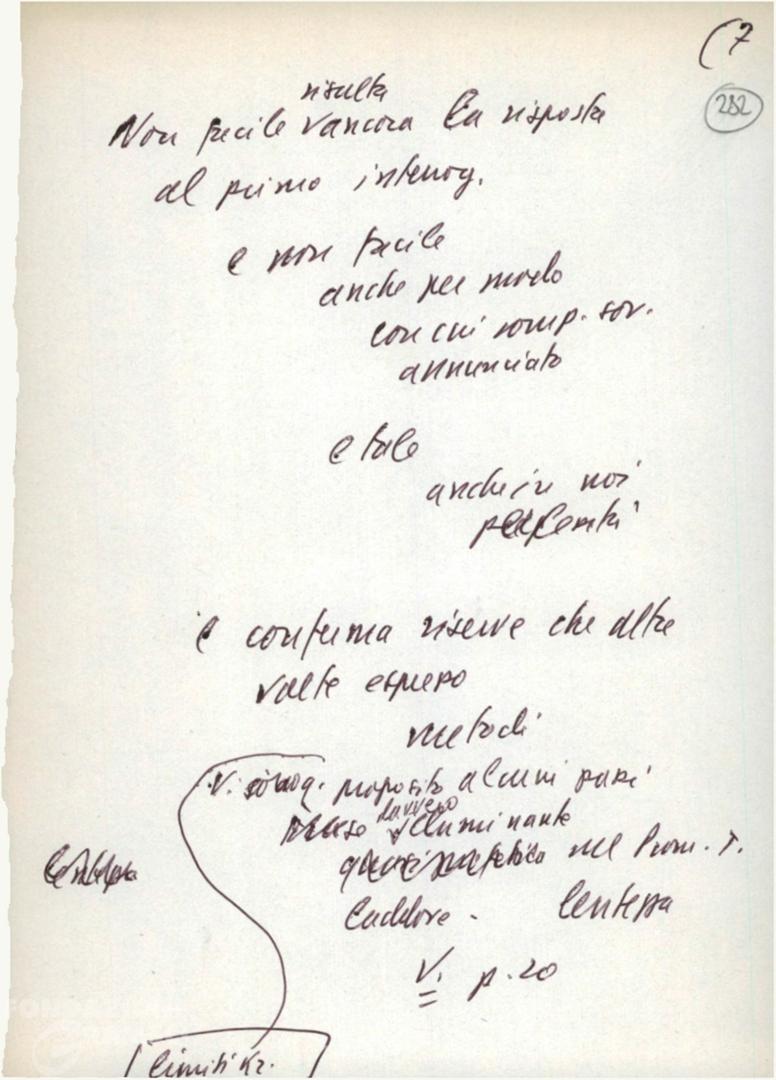 (7
282
risulta
Non facile ancora la risposta
al primo interrog.
e non facile
anche per modo
con cui comp. sov.
annunciato
e tale
anche in noi
e conferma riserve che altre
volte espresso
metodi
V. proposito alcuni passi
davvero
illuminante
nel Prom. T.
lentezza
V. p. 20
limiti Kr.